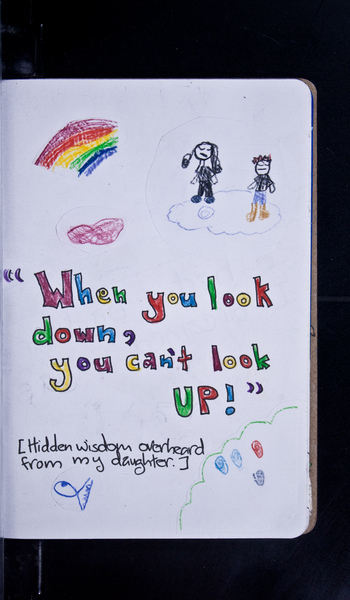 "When you look
down,
you can't look
UP!"
[Hidden wisdom overheard
from my daughter.]